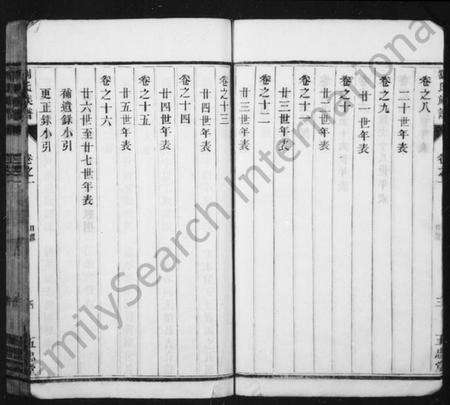 卷之八
二十世年表
卷之九
廿一世年表
卷之十
廿二世年表
卷之十一
廿三世年表
卷之十二
廿三世年表
卷之十三
廿四世年表
卷之十四
廿四世年表
卷之十五
廿五世年表
卷之十六
廿六世至廿七世年表
補遺錄小引
更正錄小引
卷之一
五忠堂
FamilySearch International